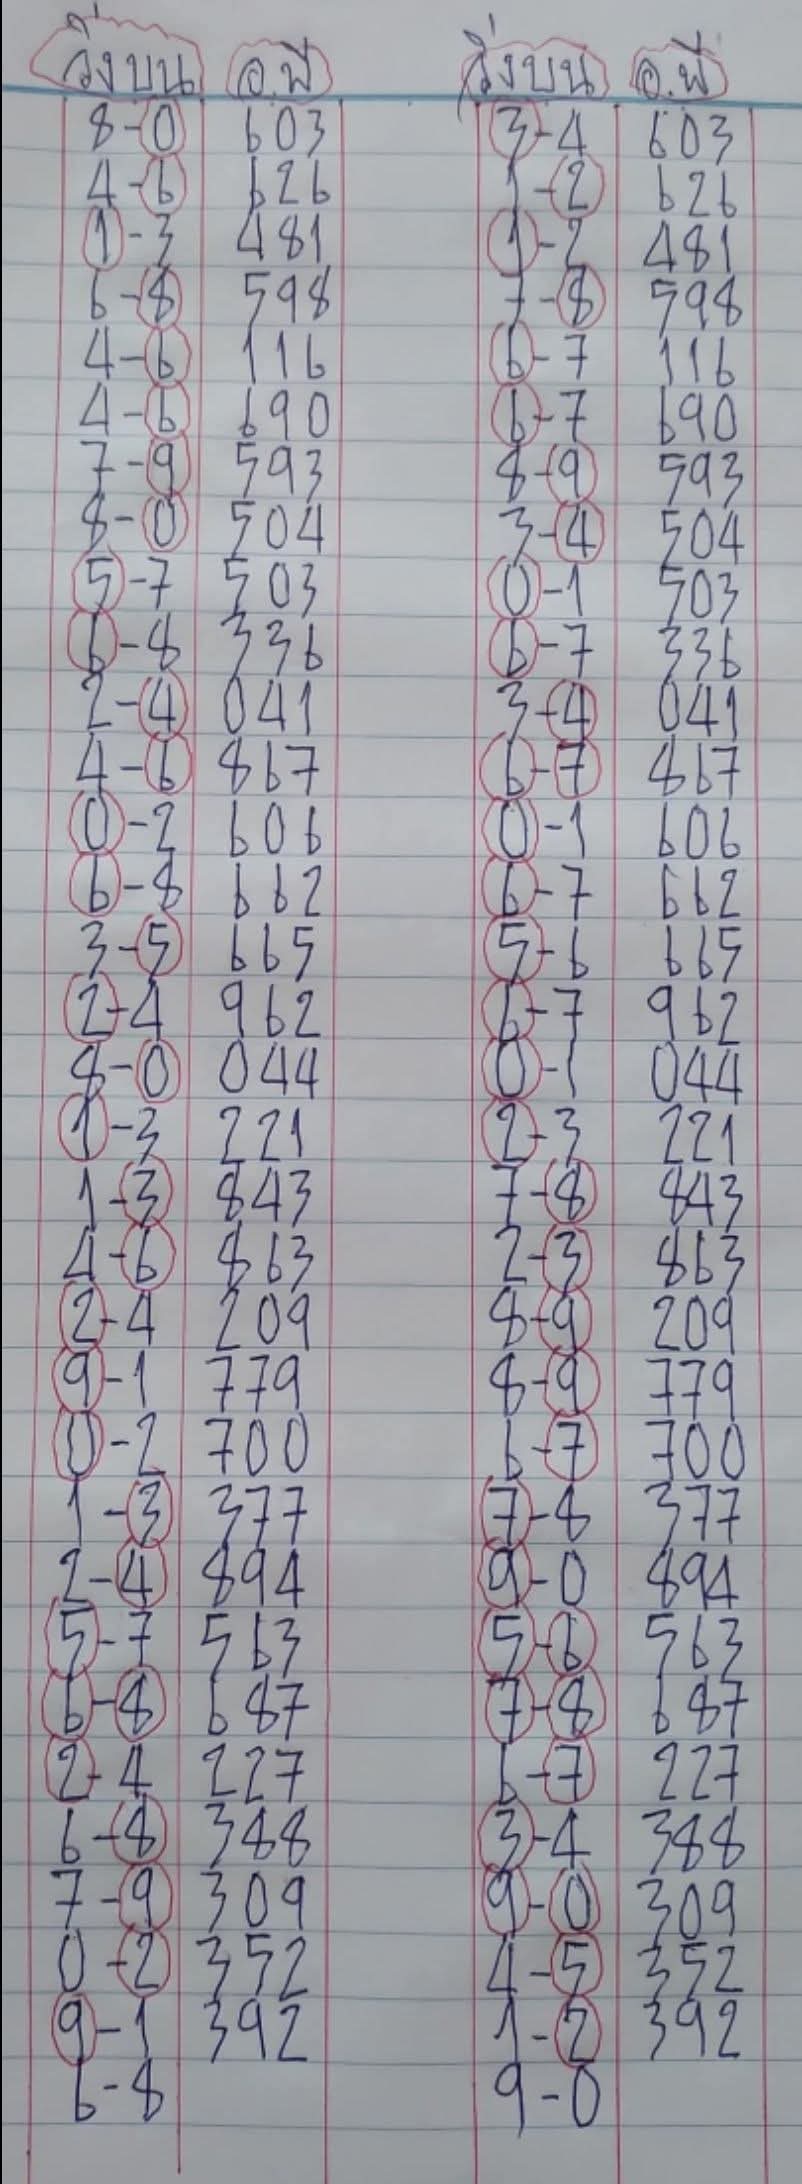 วิ่งบน อ.พี วิ่งบน อ.พี
8-0 603 3-4 603
4-6 626 1-2 626
1-3 481 1-2 481
6-8 598 7-8 598
4-6 116 6-7 116
4-6 690 6-7 690
7-9 593 8-9 593
8-0 504 3-4 504
5-7 503 0-1 503
6-8 336 6-7 336
2-4 041 3-4 041
4-6 867 6-7 867
0-2 606 0-1 606
6-8 662 6-7 662
3-5 665 5-6 665
2-4 962 6-7 962
8-0 044 0-1 044
1-3 221 2-3 221
1-3 843 7-8 843
4-6 863 2-3 863
2-4 209 8-9 209
9-1 779 8-9 779
0-2 700 6-7 700
1-3 377 7-8 377
2-4 894 9-0 894
5-7 563 5-6 563
6-8 687 7-8 687
2-4 227 6-7 227
6-8 388 3-4 388
7-9 309 9-0 309
0-2 352 4-5 352
9-1 392 1-2 392
6-8 9-0